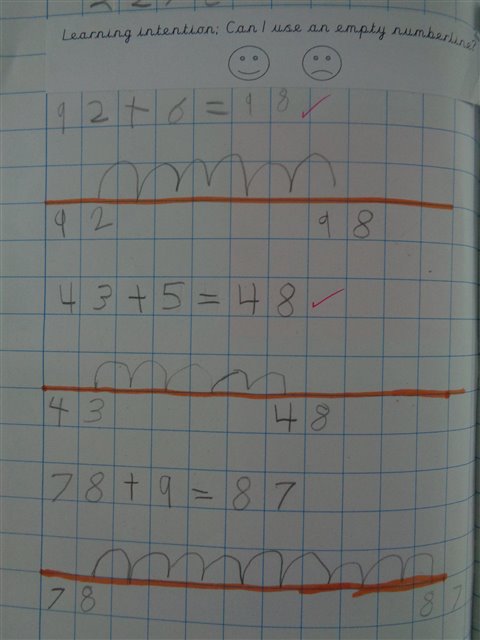 Learning intention: Can I use an empty numberline?
92+6=98
92 98
43+5=48
43 48
78+9=87
78 87